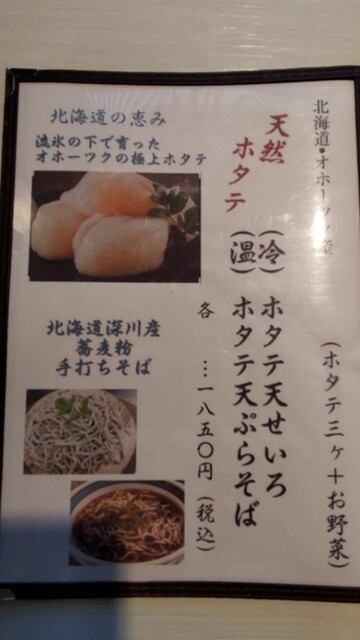 北海道・オホーツク産
天然
ホタテ
(冷) ホタテ天せいろ
(温) ホタテ天ぷらそば
(ホタテ三ヶ+お野菜)
各 …一八五〇円(税込)
北海道の恵み
流氷の下で育った
オホーツクの極上ホタテ
北海道深川産
蕎麦粉
手打ちそば